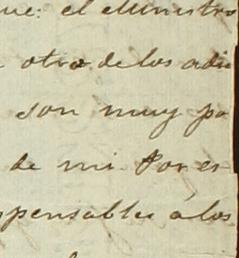 ue: el Ministro
otro de los adic
son muy po
de mi. Por es
spensables á los